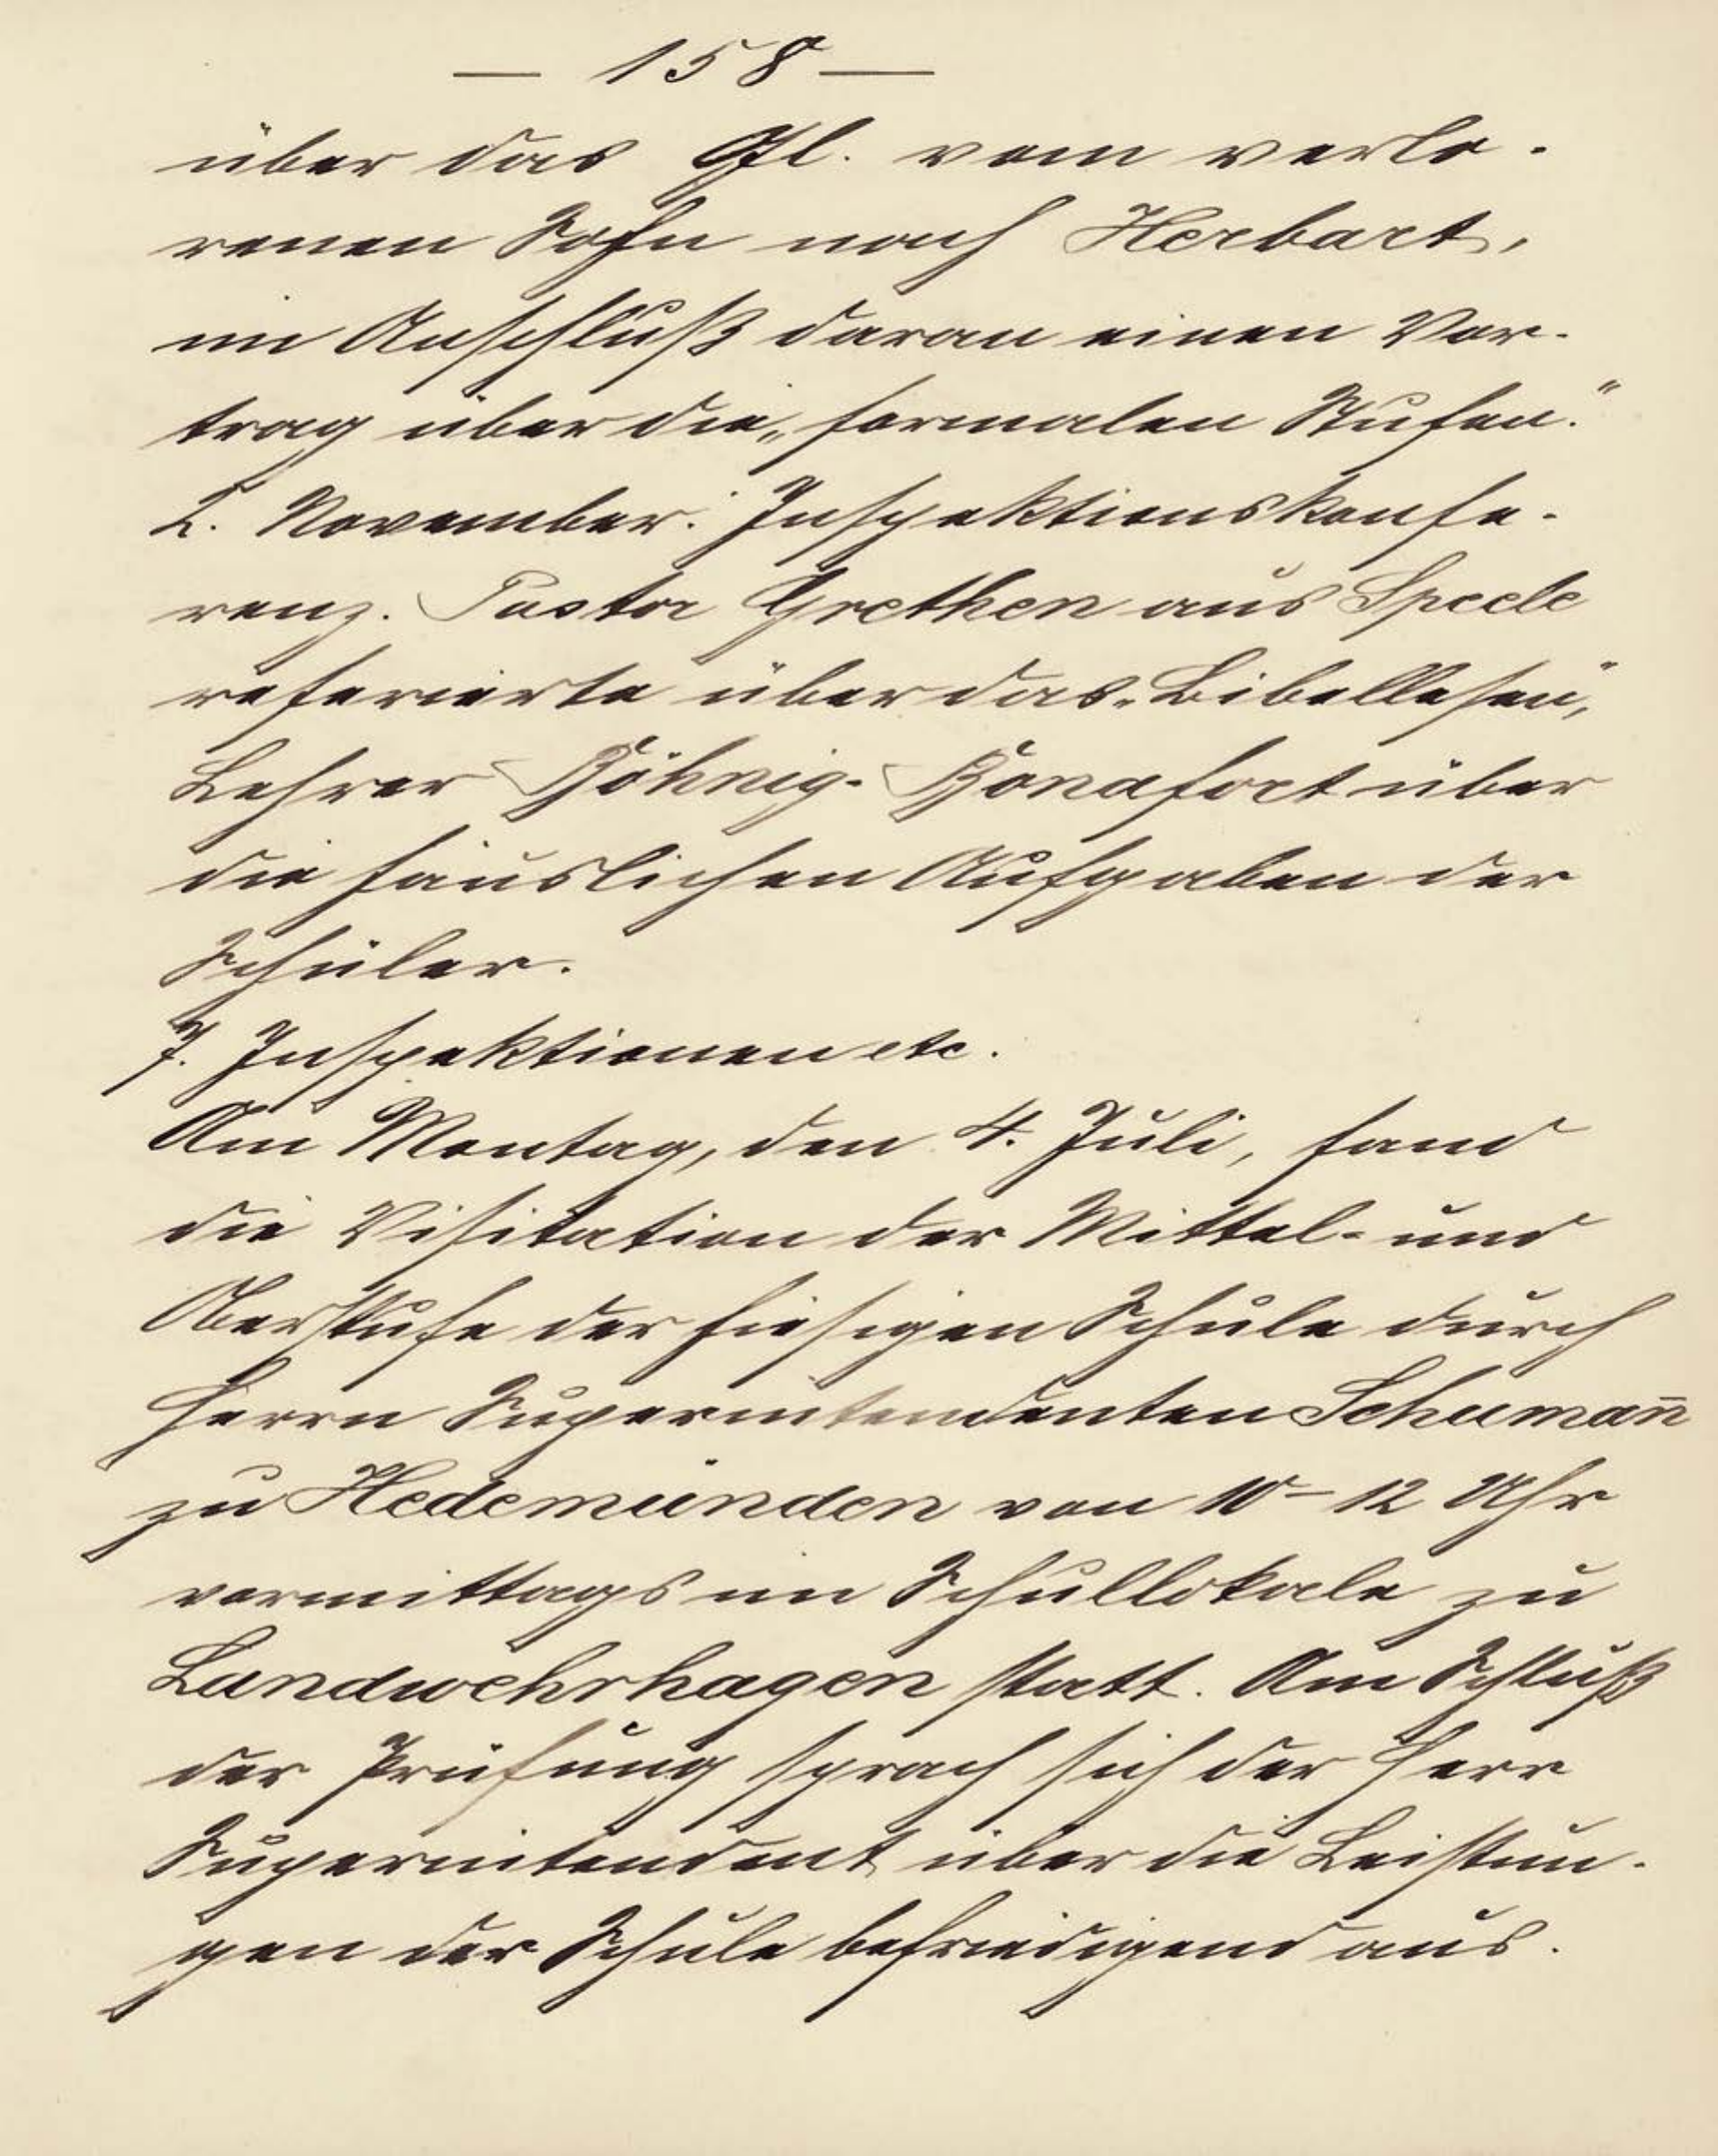 — 158 —
über das Gl. vom verlo-
renen Sohn nach Herbart,
im Anschluß daran einen Vor-
trag über die „formalen Stufen."
2. November: Inspektionskonfe-
renz. Pastor Grethen aus Speele
referierte über das „Bibellesen",
Lehrer Böhnig-Bonafort über
die häuslichen Aufgaben der
Schüler.
7. Inspektionen etc.
Am Montag, den 4. Juli, fand
die Visitation der Mittel- und
Oberstufe der hiesigen Schule durch
Herrn Superintendenten Schuman̄
zu Hedemünden von 10–12 Uhr
vormittags im Schullokale zu
Landwehrhagen statt. Am Schluß
der Prüfung sprach sich der Herr
Superintendent über die Leistun-
gen der Schule befriedigend aus.